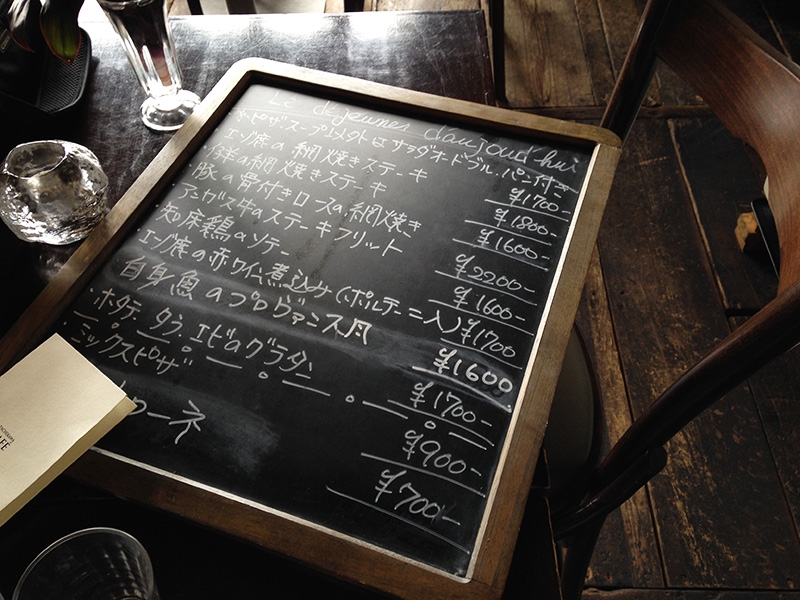 Le dejeunes d'aujoud'hui
*ピザ.スープ.レクト以外はサラダオードブル.パン付き
・エゾ鹿の網焼きステーキ ¥1700-
・鮮の網焼きステーキ ¥1800-
・豚の骨付きロースの網焼き ¥1600-
・アンガス牛のステーキフリット ¥2200-
・知床鶏のソテー ¥1600-
・エゾ鹿の赤ワイン煮込み(ポルチーニ入) ¥1700
・白身魚のプロヴァンス風 ¥1600
・ホタテ、タラ、エビのグラタン ¥1700-
・ミックスピザ ¥900-
ローネ ¥700-